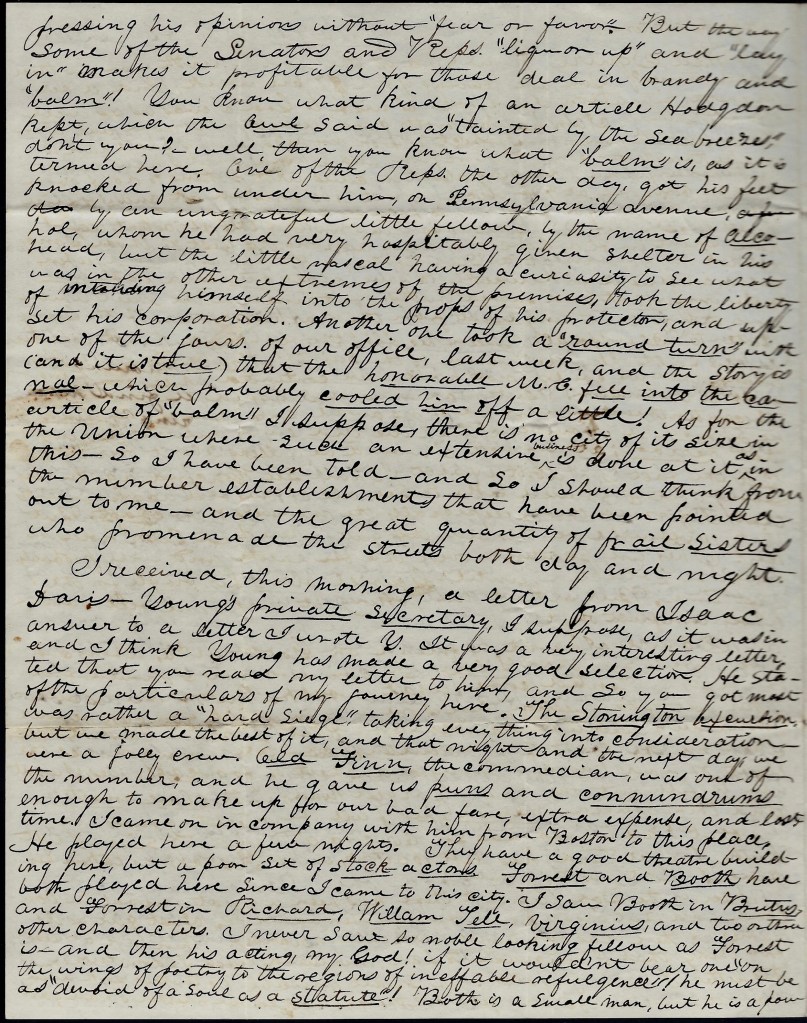 pressing his opinions without "fear or favor". But the way
some of the Senators and Reps. "liquor up" and "lay
in" makes it profitable for those deal in brandy and
"balm"! You know what kind of an article Hodgdon
kept, which the Owl said was "tainted by the sea breezes,"
don't you?– well, then you know what "balm" is, as it is
termed here. One of the Reps. the other day, got his feet
knocked from under him, on Pennsylvania avenue,
by an ungrateful little fellow, by the name of Alco-
hol, whom he had very hospitably given shelter in his
head, but the little rascal having a curiosity to see what
was in the other extremes of the premises, took the liberty
of himself into the props of his protector, and up-
set his corporation. Another one took a "round turn" with
one of the jours. of our office, last week, and the story is
(and it is true) that the honorable M. C. fell into the ca-
nal – which probably cooled him off a little! As for the
article of "balm" I suppose, there is no city of its size in
the Union where such an extensive business is done at it as in
this – So I have been told – and so I should think from
the number establishments that have been pointed
out to me – and the great quantity of frail sisters
who promenade the streets both day and night.
I received, this morning, a letter from Isaac
Davis – Young's private Secretary, I suppose, as it was in
answer to a letter I wrote Y. It was a very interesting letter,
and I think Young has made a very good selection. He sta-
ted that you read my letter to him, and so you got most
of the particulars of my journey here. The Stonington excursion,
was rather a "hard siege" taking everything into consideration –
but we made the best of it, and that night and the next day we
were a jolly crew. Old Finn, the commedian, was one of
the number, and he gave us puns and connundrums
enough to make up for our bad fare, extra expense, and lost
time. I came on in company with him from Boston to this place.
He played here a few nights. They have a good theatre build-
ing here, but a poor set of stock actors. Forrest and Booth have
both played here since I came to this city. I saw Booth in Brutus,
and Forrest in Richard, Willam Tell, Virginius, and two or three
other characters. I never saw so noble looking fellow as Forrest
is – and then his acting, my God! if it wouldn't bear one "on
the wings of poetry to the regions of ineffable refulgence"! he must be
as "devoid of a soul as a statute"! Booth is a small man, but he is a pow